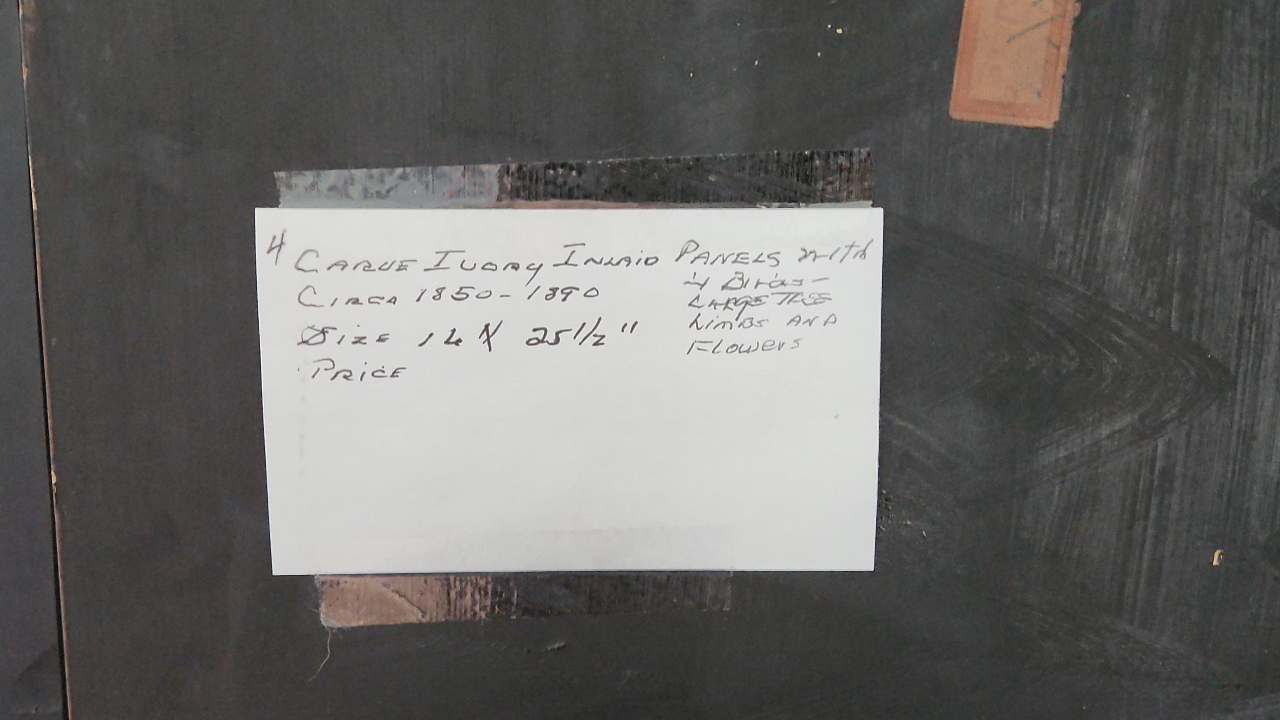 4 CARVE IVORY INLAID PANELS with
4 Birds -
LARGE TREE
LIMBS AND
FLOWERS
CIRCA 1850-1890
SIZE 16 X 25 1/2"
PRICE